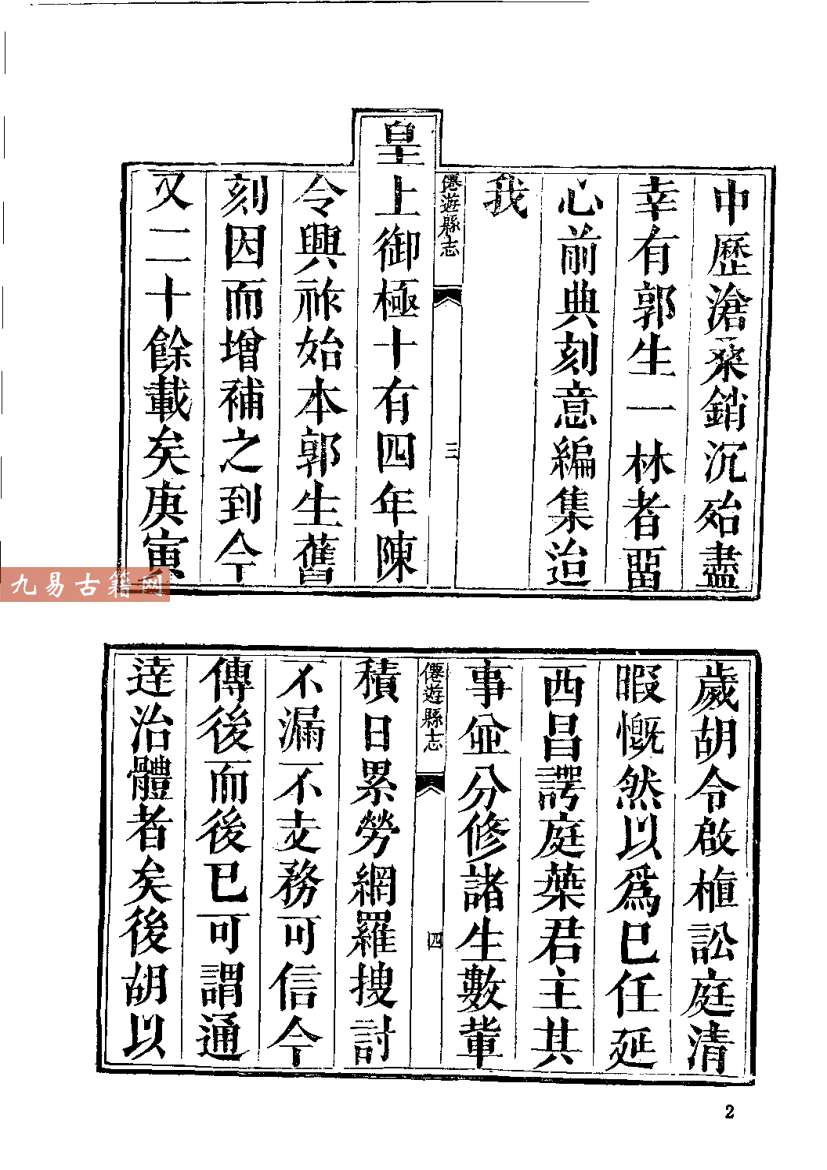 中歷滄桑銷沉殆盡
幸有郭生一林者留
心前典刻意編集迨
我
僊遊縣志
三
皇上御極十有四年陳
令興祚始本郭生舊
刻因而增補之到今
又二十餘載矣庚寅
九易古籍网
歲胡令啟植訟庭清
暇慨然以爲已任延
西昌諤庭葉君主其
事並分修諸生數輩
僊遊縣志
四
積日累勞網羅搜討
不漏不支務可信今
傳後而後已可謂通
達治體者矣後胡以
2